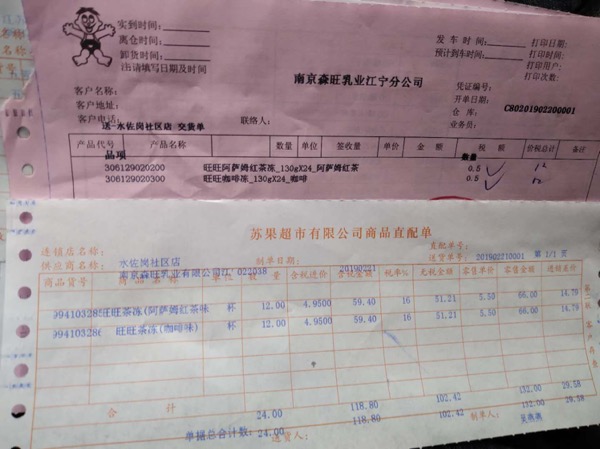 实到时间:
离仓时间:
卸货时间:
(注:请填写日期及时间
发车时间: 打印日期:
预计到车时间: 打印时间:
打印用户:
打印次数:
南京森旺乳业江宁分公司
客户名称: 凭证编号:
客户地址: 开单日期:
客户电话: 联络人: 仓库: CB0201902200001
送-水佐岗社区店 交货单 业务员:
产品代号 产品名称 数量 单位 签收量 单价 金额 税额 价税总计 备注
品项 数量
306129020200 旺旺阿萨姆红茶冻_130gX24_阿萨姆红茶 0.5 12
306129020300 旺旺咖啡冻_130gX24_咖啡 0.5 12
苏果超市有限公司商品直配单
连锁店名称: 水佐岗社区店 制单日期: 直配单号:
供应商名称: 南京森旺乳业有限公司江 022038 20190221 送货单号: 201902210001 第 1/1 页
商品货号 商品名称 单位 数量 含税进价 含税金额 税率% 无税金额 零售单价 零售金额 进销差价
99410328 旺旺茶冻(阿萨姆红茶味 杯 12.00 4.9500 59.40 16 51.21 5.50 66.00 14.79
99410328 旺旺茶冻(咖啡味) 杯 12.00 4.9500 59.40 16 51.21 5.50 66.00 14.79
合计 24.00 118.80 102.42 132.00 29.58
单据总合计数: 24.00 118.80 102.42 132.00 29.58
送货人: 制单人: